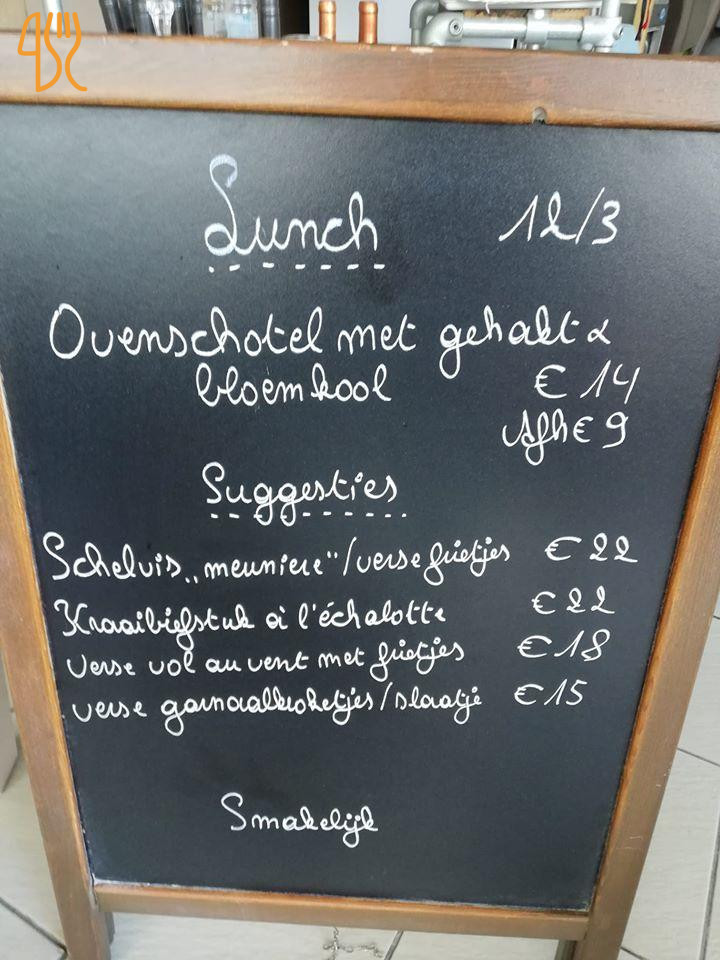 Lunch 12/3
Ovenschotel met gehakt &
bloemkool € 14
Afh € 9
Suggesties
Schelvis „meuniere"/verse frietjes € 22
Kraaibiefstuk à l'échalotte € 22
verse vol au vent met frietjes € 18
verse garnaalkroketjes/slaatje € 15
Smakelijk